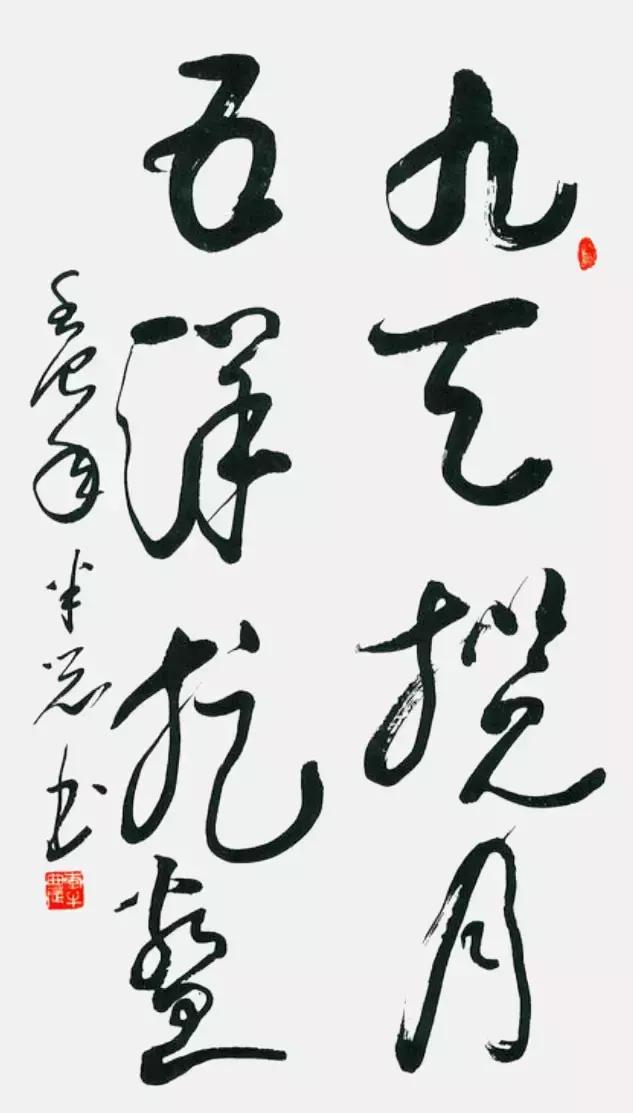 九天揽月
五洋捉鳖
壬辰年半觉书